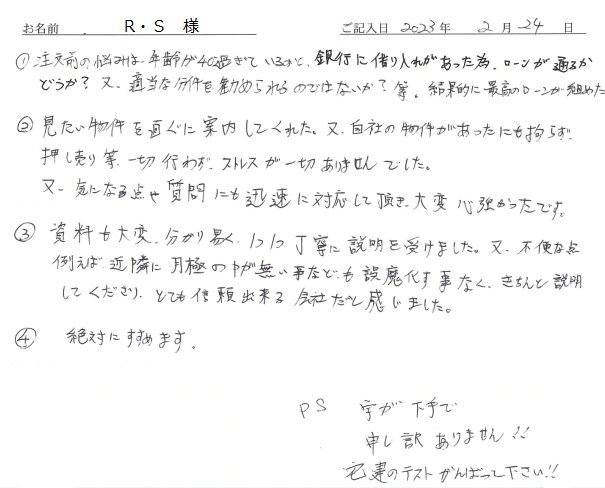 お名前 R・S 様 ご記入日 2023年 2月 24日
① 注文前の悩みは、年齢が40過ぎているのと、銀行に借り入れがあった為、ローンが通るか
どうか？又、適当な物件を勧められるのではないか？等。結果的に最高のローンが組めた
② 見たい物件を直ぐに案内してくれた。又、自社の物件があったにも拘らず、
押し売り等、一切行わず、ストレスが一切ありませんでした。
又、気になる点や質問にも迅速に対応して頂き、大変心強かったです。
③ 資料も大変、分かり易く、1つ1つ丁寧に説明を受けました。又、不便な点
例えば、近隣に月極のPが無い事なども誤魔化す事なく、きちんと説明
してくださり、とても信頼出来る会社だと感じました。
④ 絶対にすすめます。
PS 字が下手で
申し訳ありません!!
宅建のテストがんばって下さい!!